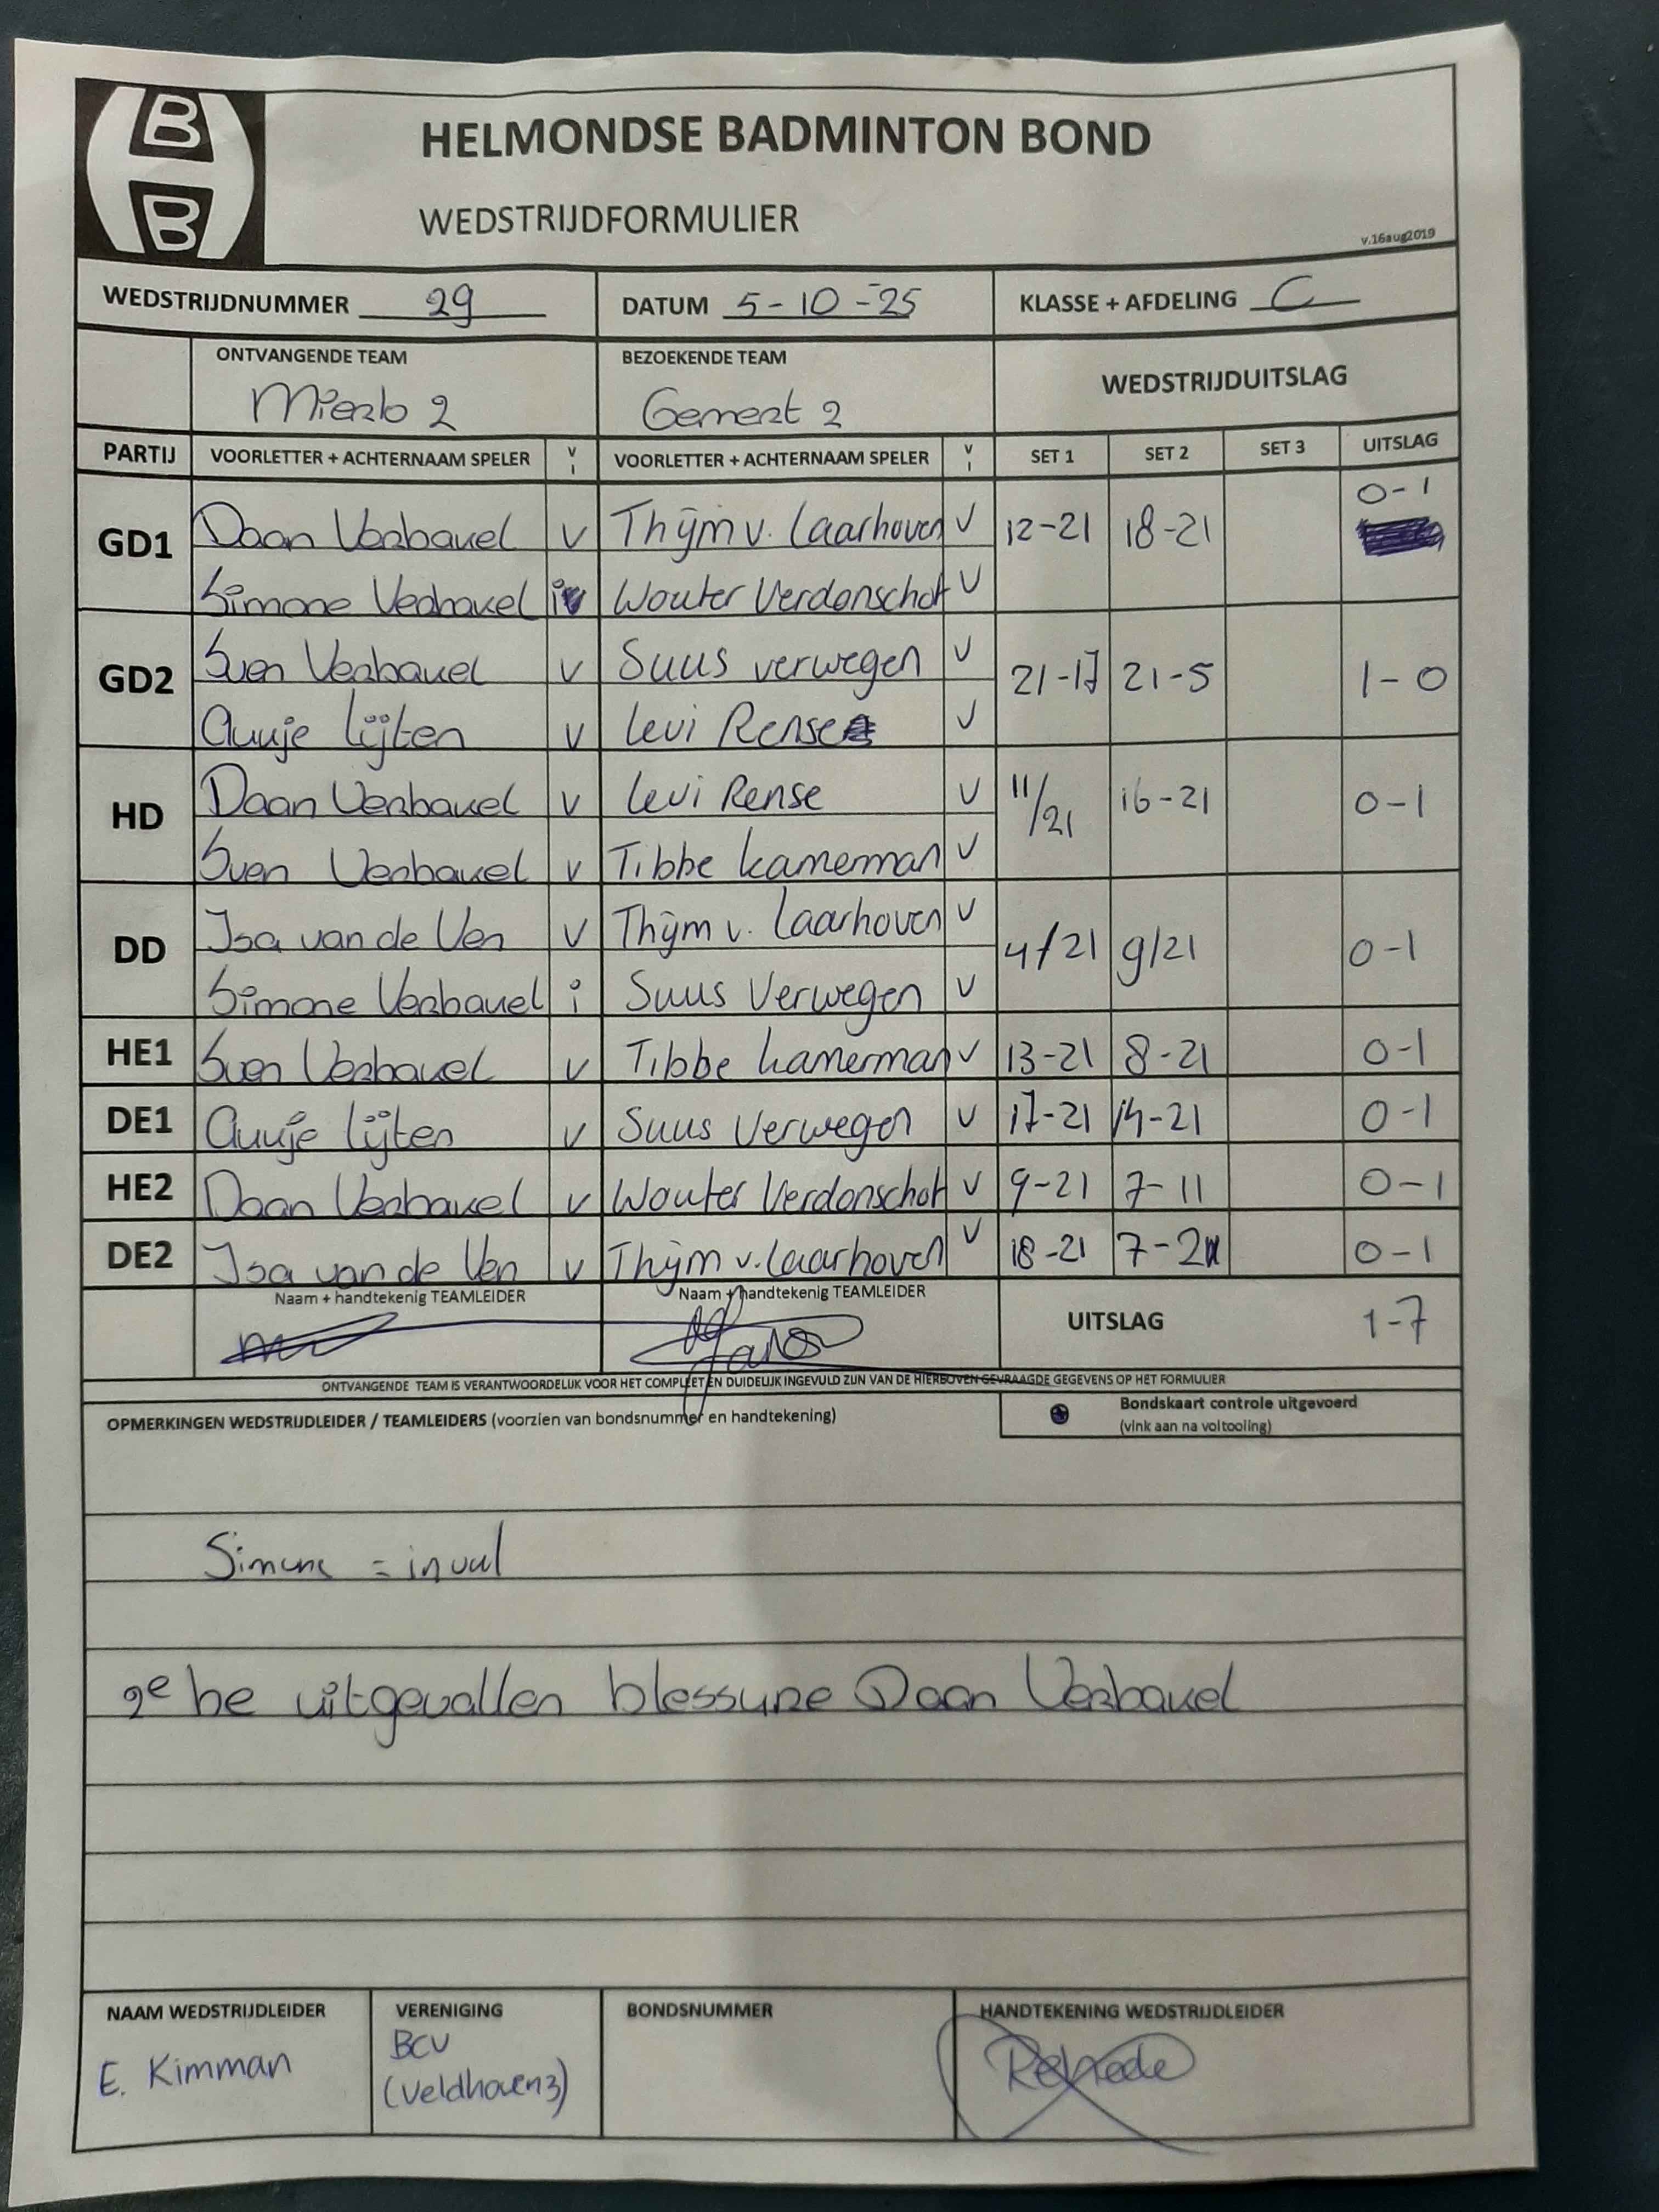 HBB
HELMONDSE BADMINTON BOND
WEDSTRIJDFORMULIER
v.16aug2019
WEDSTRIJDNUMMER 29 DATUM 5-10-25 KLASSE + AFDELING C
ONTVANGENDE TEAM BEZOEKENDE TEAM WEDSTRIJDUITSLAG
Mierlo 2 Gemert 2
PARTIJ VOORLETTER + ACHTERNAAM SPELER V I VOORLETTER + ACHTERNAAM SPELER V I SET 1 SET 2 SET 3 UITSLAG
GD1 Daan Verbakel v Thijm v. Laarhoven v 12-21 18-21 0-1
Simone Verbakel i Wouter Verdonschot v
GD2 Sven Verbakel v Suus verwegen v 21-17 21-5 1-0
Auuje Lijten v Levi Rense v
HD Daan Verbakel v Levi Rense v 11/21 16-21 0-1
Sven Verbakel v Tibbe kamerman v
DD Isa van de Ven v Thijm v. Laarhoven v 4/21 9/21 0-1
Simone Verbakel i Suus Verwegen v
HE1 Sven Verbakel v Tibbe kamerman v 13-21 8-21 0-1
DE1 Auuje Lijten v Suus Verwegen v 17-21 14-21 0-1
HE2 Daan Verbakel v Wouter Verdonschot v 9-21 7-11 0-1
DE2 Isa van de Ven v Thijm v. Laarhoven v 18-21 7-21 0-1
Naam + handtekenig TEAMLEIDER Naam + handtekenig TEAMLEIDER UITSLAG 1-7
ONTVANGENDE TEAM IS VERANTWOORDELIJK VOOR HET COMPLEET EN DUIDELIJK INGEVULD ZIJN VAN DE HIERBOVEN GEVRAAGDE GEGEVENS OP HET FORMULIER
OPMERKINGEN WEDSTRIJDLEIDER / TEAMLEIDERS (voorzien van bondsnummer en handtekening) Bondskaart controle uitgevoerd
(vink aan na voltooling)
Simone = inval
2e he uitgevallen blessure Daan Verbakel
NAAM WEDSTRIJDLEIDER VERENIGING BONDSNUMMER HANDTEKENING WEDSTRIJDLEIDER
E. Kimman BCV
(Veldhoven3)